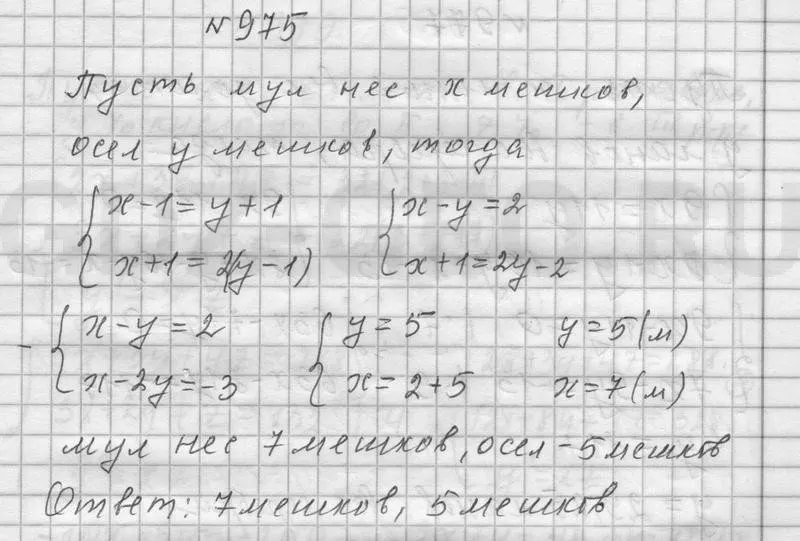 №975
Пусть мул нес x мешков,
осел y мешков, тогда
{ x-1=y+1 { x-y=2
{ x+1=2(y-1) { x+1=2y-2
- { x-y=2 { y=5 y=5(м)
{ x-2y=-3 { x=2+5 x=7(м)
мул нес 7 мешков, осел - 5 мешков
Ответ: 7 мешков, 5 мешков